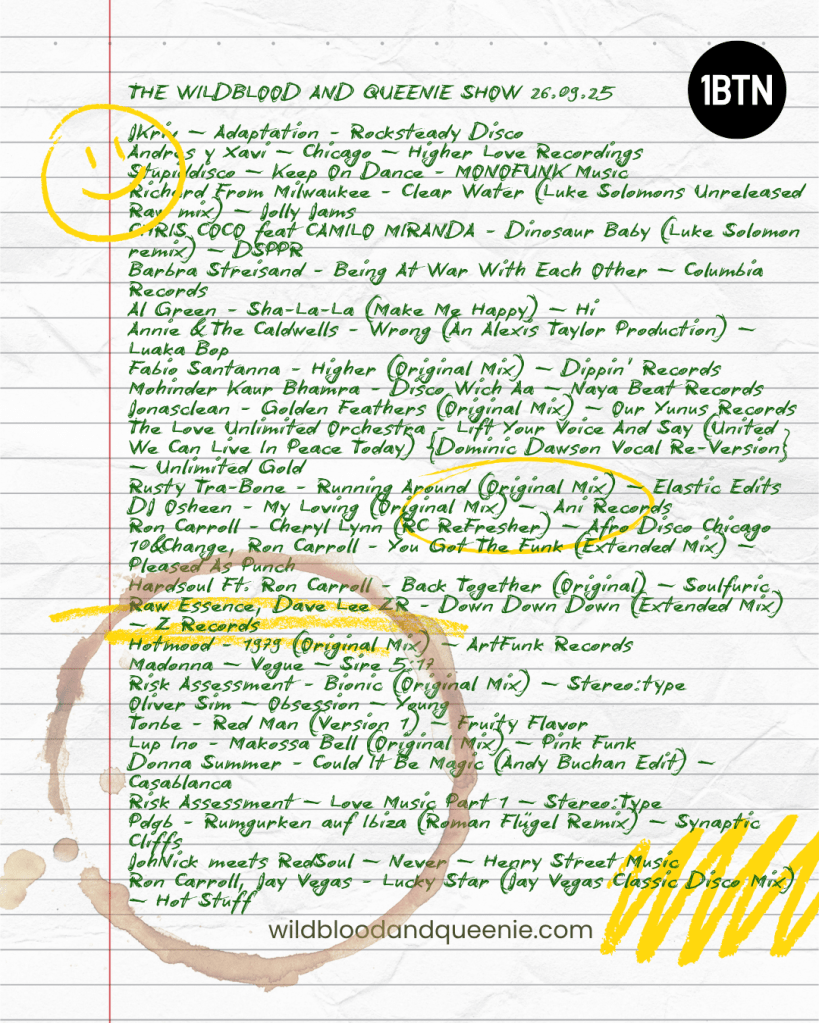 THE WILDBLOOD AND QUEENIE SHOW 26.09.25
1BTN
JKriv – Adaptation - Rocksteady Disco
Andres y Xavi – Chicago – Higher Love Recordings
Stupiddisco – Keep On Dance - MONOFUNK Music
Richard From Milwaukee - Clear Water (Luke Solomons Unreleased
Raw mix) – Jolly Jams
CHRIS COCO feat CAMILO MIRANDA - Dinosaur Baby (Luke Solomon
remix) – DSPPR
Barbra Streisand - Being At War With Each Other – Columbia
Records
Al Green - Sha-La-La (Make Me Happy) – Hi
Annie & The Caldwells - Wrong (An Alexis Taylor Production) –
Luaka Bop
Fabio Santanna - Higher (Original Mix) – Dippin' Records
Mohinder Kaur Bhamra - Disco Wich Aa – Naya Beat Records
Jonasclean - Golden Feathers (Original Mix) – Our Yunus Records
The Love Unlimited Orchestra - Lift Your Voice And Say (United
We Can Live In Peace Today) {Dominic Dawson Vocal Re-Version}
– Unlimited Gold
Rusty Tra-Bone - Running Around (Original Mix) – Elastic Edits
DJ Osheen - My Loving (Original Mix) – Ani Records
Ron Carroll - Cheryl Lynn (RC ReFresher) – Afro Disco Chicago
10&Change, Ron Carroll - You Got The Funk (Extended Mix) –
Pleased As Punch
Hardsoul Ft. Ron Carroll - Back Together (Original) – Soulfuric
Raw Essence, Dave Lee ZR - Down Down Down (Extended Mix)
– Z Records
Hotmood - 1979 (Original Mix) – ArtFunk Records
Madonna – Vogue – Sire 5:17
Risk Assessment - Bionic (Original Mix) – Stereo:type
Oliver Sim – Obsession – Young
Tonbe - Red Man (Version 1) – Fruity Flavor
Lup Ino - Makossa Bell (Original Mix) – Pink Funk
Donna Summer - Could It Be Magic (Andy Buchan Edit) –
Casablanca
Risk Assessment – Love Music Part 1 – Stereo:Type
Pdqb - Rumgurken auf Ibiza (Roman Flügel Remix) – Synaptic
Cliffs
JohNick meets RedSoul – Never – Henry Street Music
Ron Carroll, Jay Vegas - Lucky Star (Jay Vegas Classic Disco Mix)
– Hot Stuff
wildbloodandqueenie.com